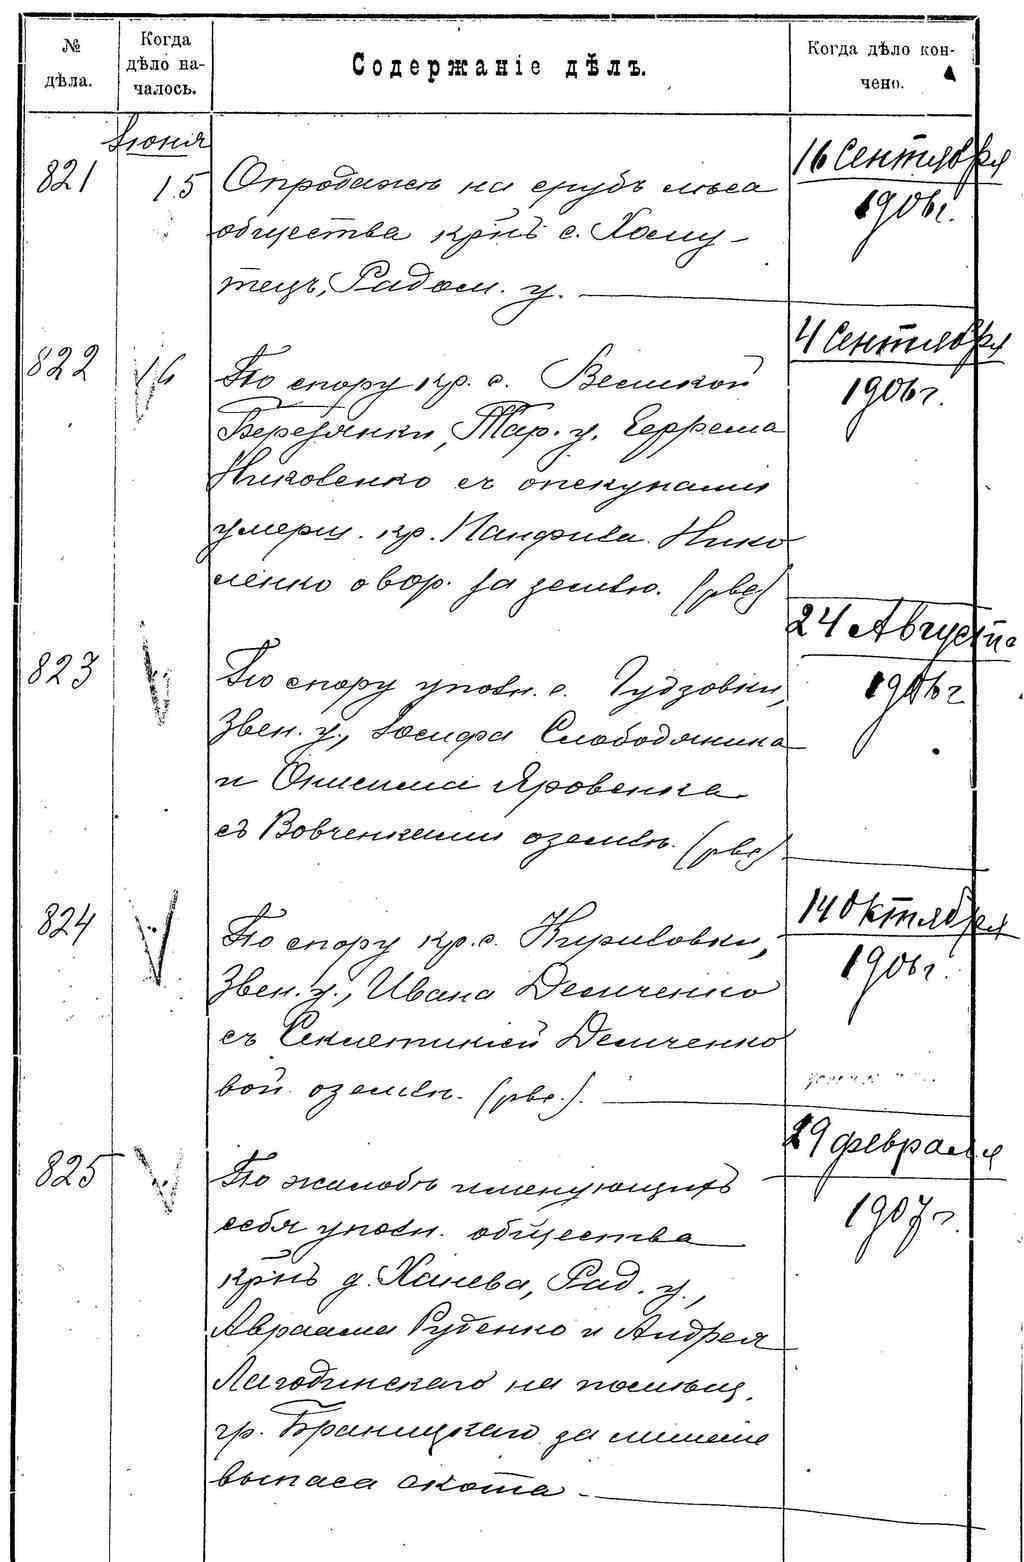 № дѣла.
Когда дѣло на-
чалось.
Содержаніе дѣлъ.
Когда дѣло кон-
чено.
Іюня
821 15 О продажѣ на срубъ лѣса
общества крнъ с. Хому-
тецъ, Радом. у.
16 Сентября
1906 г.
822 16 По спору кр. с. Великой
Березянки, Тар. у. Ефрема
Николенко съ опекунами
умерш. кр. Панфила Нико
ленко о вор. за землю. (рвс)
4 Сентября
1906 г.
823 По спору уполн. с. Гудзовки,
Звен. у., Іосифа Слободяника
и Онисима Яровенка
съ Вовченками о землѣ. (рвс)
24 Августа
1906 г
824 По спору кр. с. Кириловки,
Звен. у., Ивана Демченко
съ Секлетикіей Демченко
вой о землѣ. (рвс.).
14 Октября
1906 г.
825 По жалобѣ именующихъ
себя уполн. общества
крнъ д. Ханева, Рад. у.,
Авраама Руденко и Андрея
Лагодинскаго на помѣщ.
гр. Браницкаго за лишеніе
выпаса скота
19 февраля
1907 г.